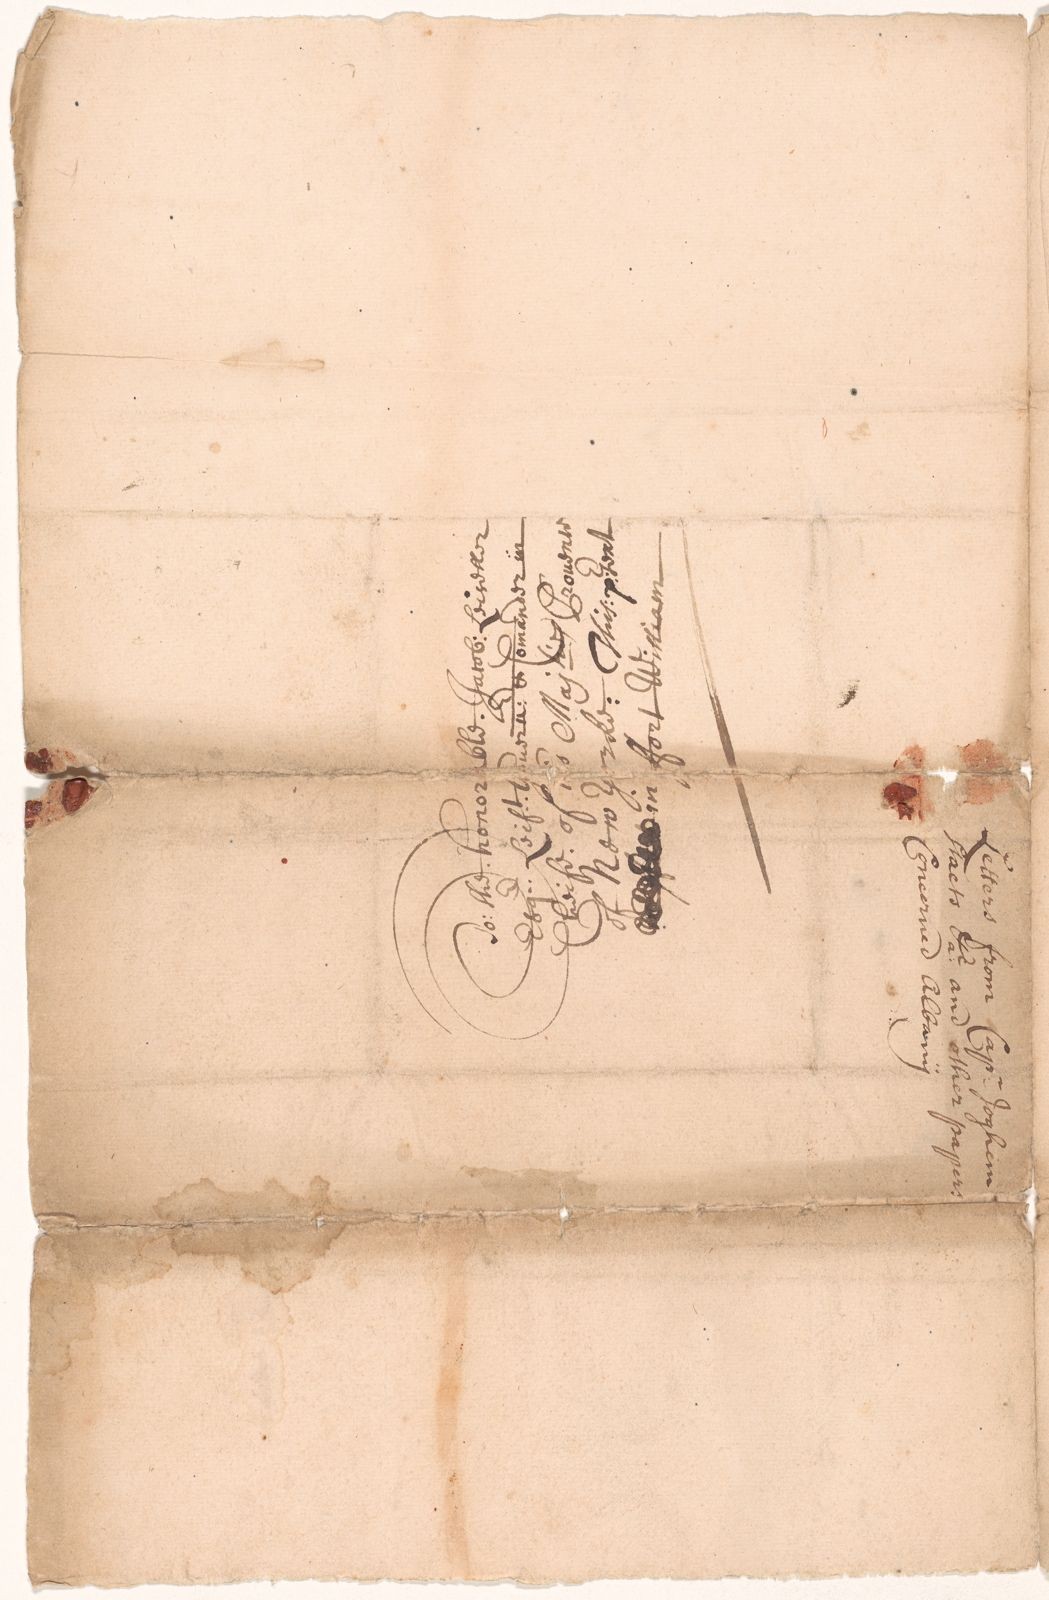 To: the honorable: Jacob: Leisler
Esqr: Leift: Govern: & Comander in
Cheife. of his Majties Prouince
of New Yorke: This: p:sent
in fort William
Letters from Capn Joghim
Staets and other papers
Concerned Albanij